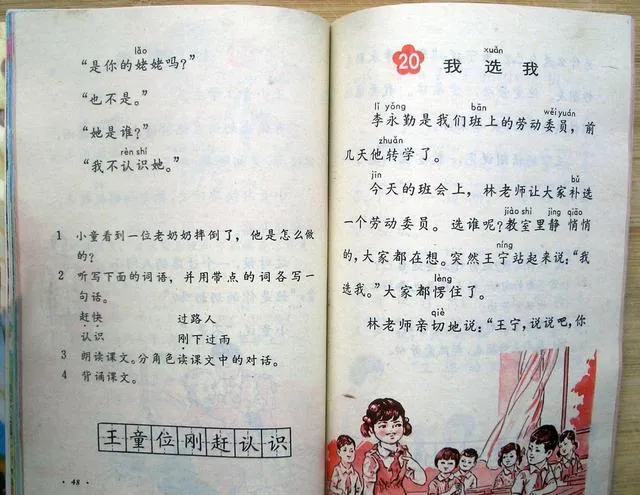 lǎo
“是你的姥姥吗？”
“也不是。”
“她是谁？”
rèn shí
“我不认识她。”
1 小童看到一位老奶奶摔倒了，他是怎么做
的？
2 听写下面的词语，并用带点的词各写一
句话。
赶快 过路人
认识 刚下过雨
3 朗读课文。分角色读课文中的对话。
4 背诵课文。
王童位刚赶认识
· 48 ·
xuǎn
20 我 选 我
lǐ yǒng bān wěi yuán
李永勤是我们班上的劳动委员，前
zhuǎn
几天他转学了。
jīn bǔ
今天的班会上，林老师让大家补选
jiào shì jìng qiāo
一个劳动委员。选谁呢？教室里静悄悄
níng
的，大家都在想。突然王宁站起来说：“我
lèng
选我。”大家都愣住了。
qiè
林老师亲切地说：“王宁，说说吧，你